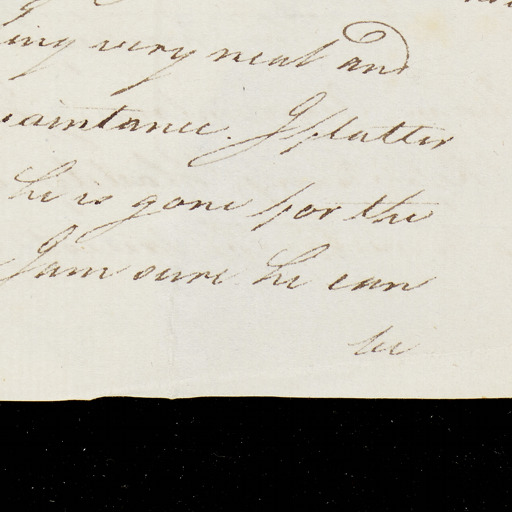 ing very neat and
uaintance. I flatter
he is gone for the
I am sure he can
be